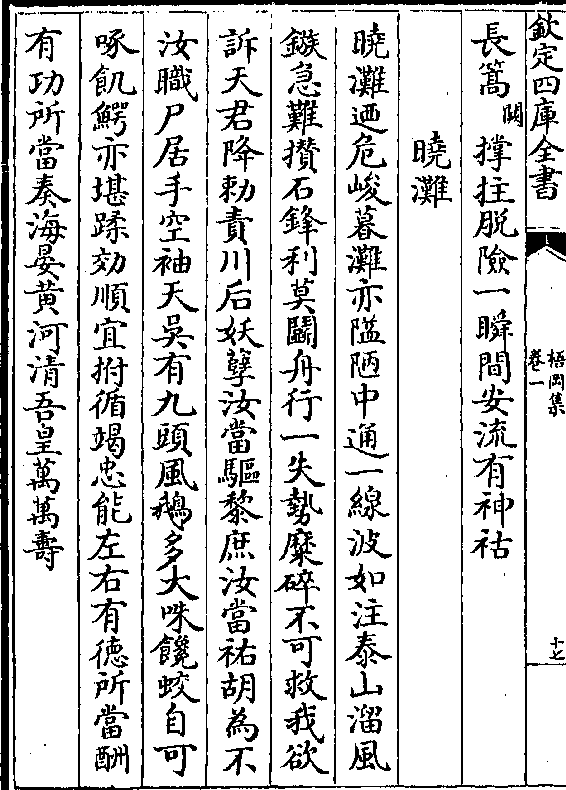 欽定四庫全書
梧岡集
卷一
十七
長篙闕撑拄脱險一瞬間安流有神祜
曉灘
曉灘迺危峻暮灘亦隘陋中通一線波如注泰山溜風
鏃急難攢石鋒利莫鬭舟行一失勢糜碎不可救我欲
訴天君降勅責川后妖孽汝當驅黎庶汝當祐胡為不
汝職尸居手空袖天吴有九頭風鵝多大咮饞蛟自可
啄飢鰐亦堪蹂効順宜拊循竭忠能左右有徳所當酬
有功所當奏海晏黄河清吾皇萬萬壽